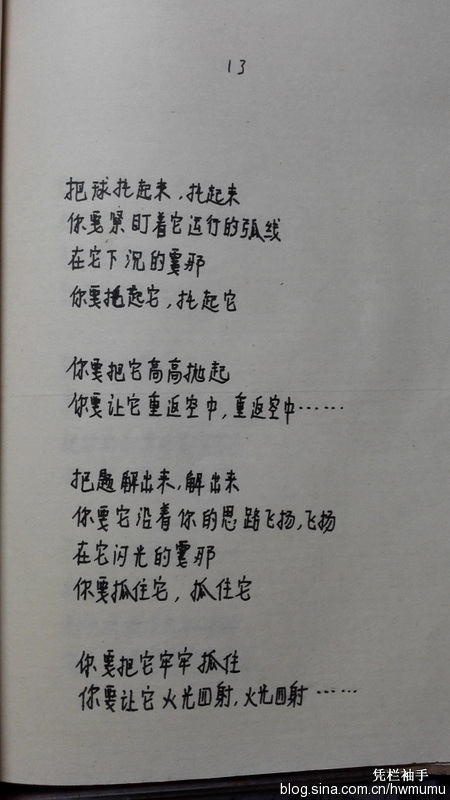 13
把球托起来,托起来
你要紧盯着它运行的弧线
在它下沉的霎那
你要托起它,托起它
你要把它高高抛起
你要让它重返空中,重返空中……
把题解出来,解出来
你要它沿着你的思路飞扬,飞扬
在它闪光的霎那
你要抓住它,抓住它
你要把它牢牢抓住
你要让它火光四射,火光四射……
凭栏袖手
blog.sina.com.cn/hwmumu